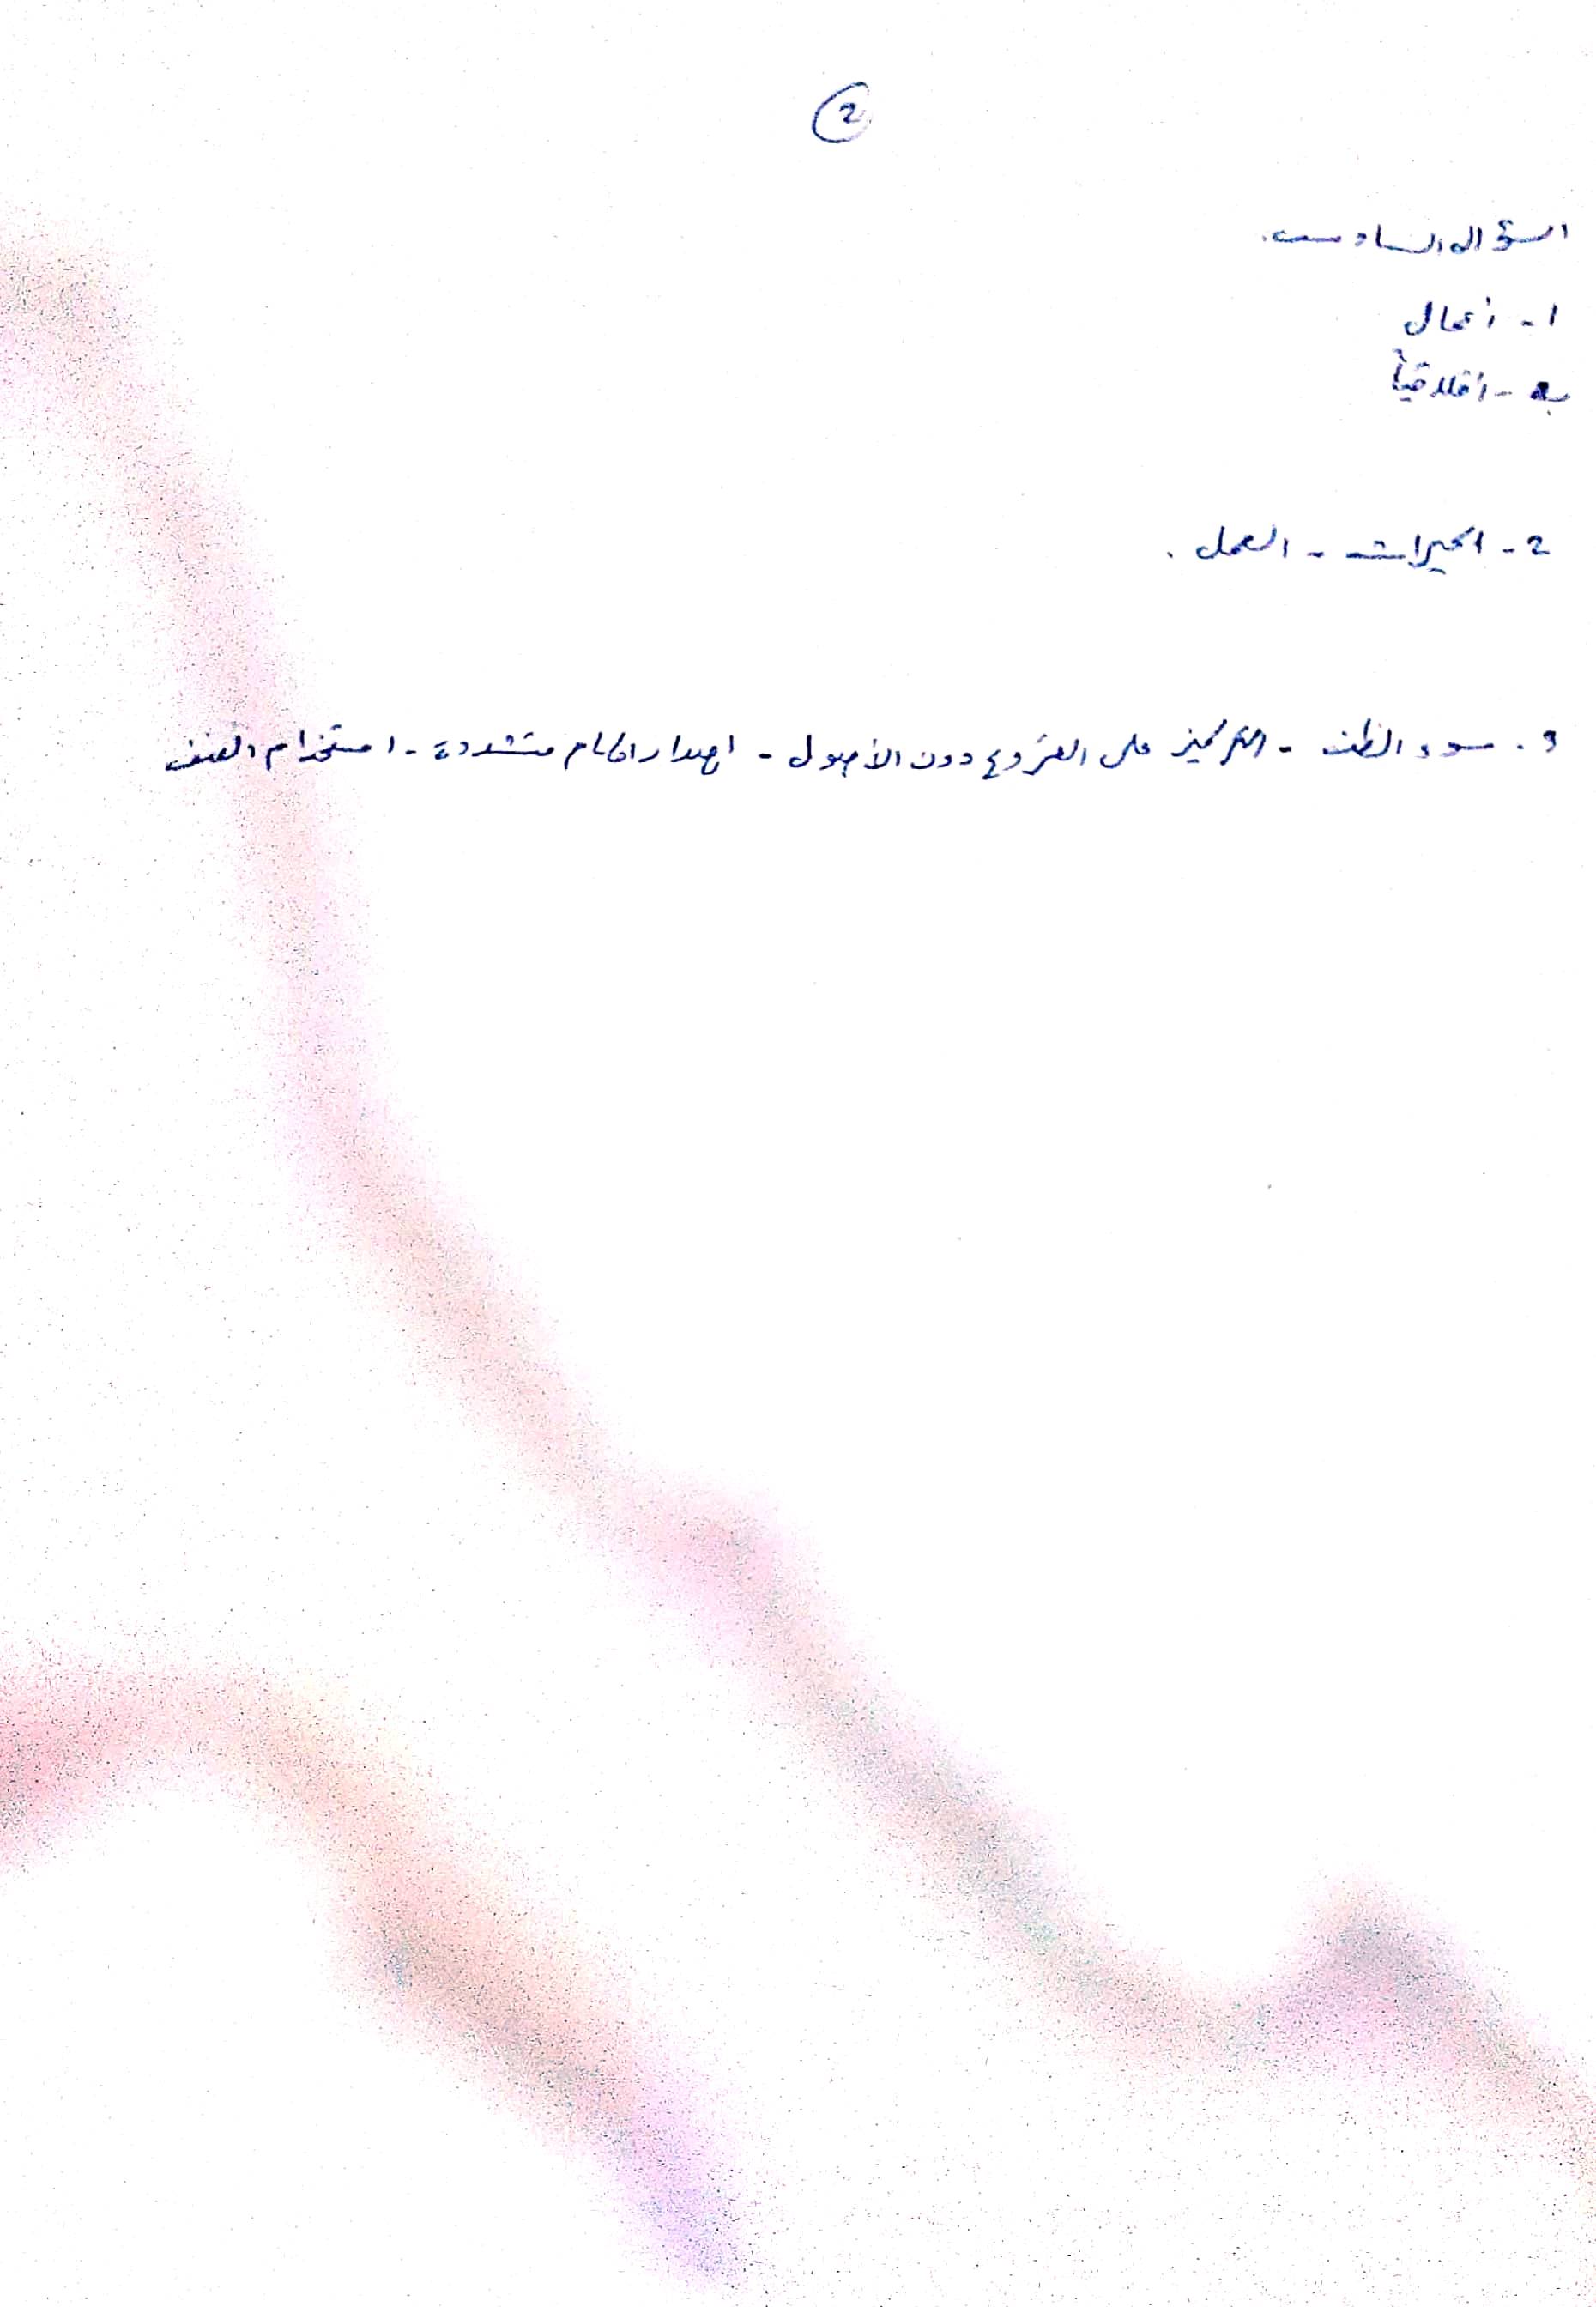 2
السؤال السادس.
1- أعمال
ب - أخلاقياً
2- الميراث - العمل.
3- سوء الظن - التركيز على الفروع دون الأصول - إصدار أحكام متشددة - استخدام العنف